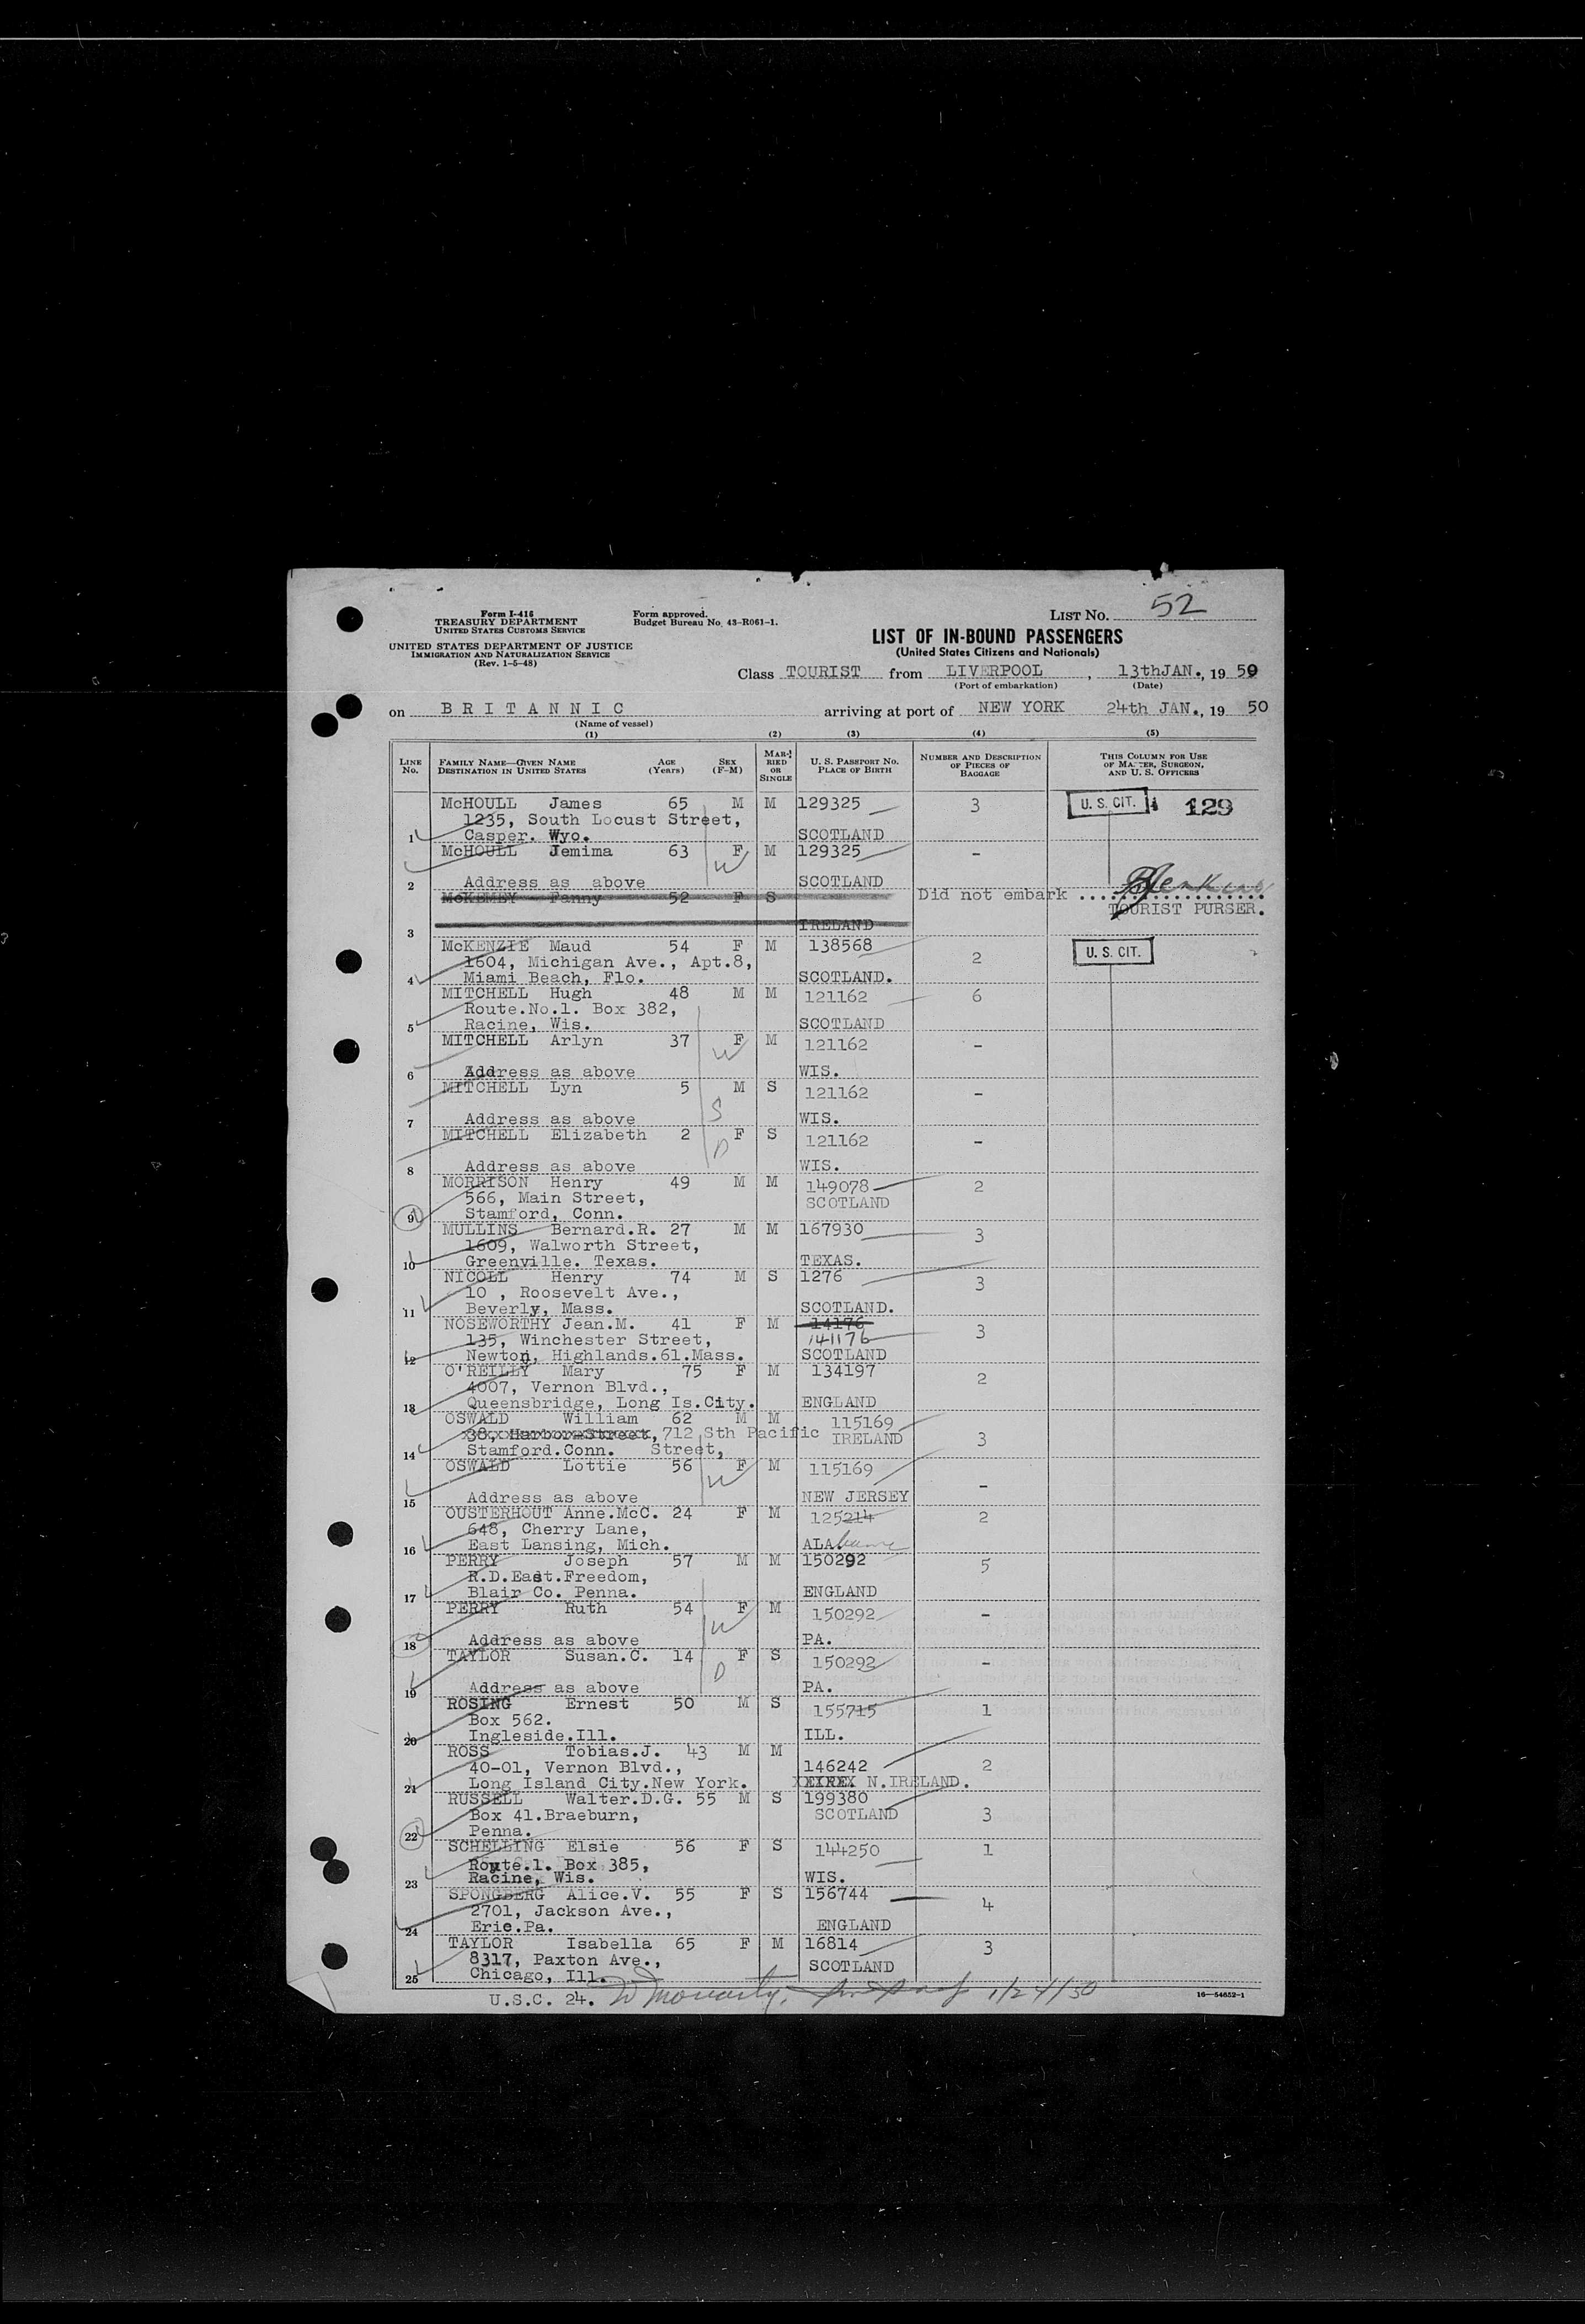 Form I-416
TREASURY DEPARTMENT
UNITED STATES CUSTOMS SERVICE
Form approved.
Budget Bureau No. 43-R061-1.
LIST NO. 52
UNITED STATES DEPARTMENT OF JUSTICE
IMMIGRATION AND NATURALIZATION SERVICE
(Rev. 1-5-48)
LIST OF IN-BOUND PASSENGERS
(United States Citizens and Nationals)
Class TOURIST from LIVERPOOL, 13thJAN., 19 50
(Port of embarkation) (Date)
on BRITANNIC arriving at port of NEW YORK 24th JAN., 19 50
(Name of vessel)
(1) (2) (3) (4) (5)
LINE No. FAMILY NAME—GIVEN NAME DESTINATION IN UNITED STATES AGE (Years) SEX (F-M) MARRIED OR SINGLE U. S. PASSPORT NO. PLACE OF BIRTH NUMBER AND DESCRIPTION OF PIECES OF BAGGAGE THIS COLUMN FOR USE OF MASTER, SURGEON, AND U. S. OFFICERS
McHOULL James 65 M M 129325 3 U. S. CIT. 129
1235, South Locust Street,
1 Casper. Wyo. SCOTLAND
McHOULL Jemima 63 F M 129325 -
W
2 Address as above SCOTLAND
McKEMEY Fanny 52 F S Did not embark
TOURIST PURSER.
3 IRELAND
McKENZIE Maud 54 F M 138568 2 U. S. CIT.
1604, Michigan Ave., Apt.8,
4 Miami Beach, Flo. SCOTLAND.
MITCHELL Hugh 48 M M 121162 6
Route.No.1. Box 382,
5 Racine, Wis. SCOTLAND
MITCHELL Arlyn 37 F M 121162 -
W
6 Address as above WIS.
MITCHELL Lyn 5 M S 121162 -
S
7 Address as above WIS.
MITCHELL Elizabeth 2 F S 121162 -
D
8 Address as above WIS.
MORRISON Henry 49 M M 149078 2
566, Main Street, SCOTLAND
9 Stamford, Conn.
MULLINS Bernard.R. 27 M M 167930 3
1609, Walworth Street,
10 Greenville. Texas. TEXAS.
NICOLL Henry 74 M S 1276 3
10 , Roosevelt Ave.,
11 Beverly, Mass. SCOTLAND.
NOSEWORTHY Jean.M. 41 F M 14176 3
135, Winchester Street, 141176
12 Newton, Highlands.61.Mass. SCOTLAND
O'REILLY Mary 75 F M 134197 2
4007, Vernon Blvd.,
13 Queensbridge, Long Is.City. ENGLAND
OSWALD William 62 M M 115169 3
38, Harbor Street, 712 Sth Pacific IRELAND
14 Stamford.Conn. Street,
OSWALD Lottie 56 F M 115169 -
W
15 Address as above NEW JERSEY
OUSTERHOUT Anne.McC. 24 F M 125214 2
648, Cherry Lane,
16 East Lansing, Mich. ALAbama
PERRY Joseph 57 M M 150292 5
R.D.East.Freedom,
17 Blair Co. Penna. ENGLAND
PERRY Ruth 54 F M 150292 -
W
18 Address as above PA.
TAYLOR Susan.C. 14 F S 150292 -
D
19 Address as above PA.
ROSING Ernest 50 M S 155715 1
Box 562.
20 Ingleside.Ill. ILL.
ROSS Tobias.J. 43 M M 146242 2
40-01, Vernon Blvd.,
21 Long Island City.New York. N.IRELAND.
RUSSELL Walter.D.G. 55 M S 199380 3
Box 41.Braeburn, SCOTLAND
22 Penna.
SCHELLING Elsie 56 F S 144250 1
Route.1. Box 385,
23 Racine, Wis. WIS.
SPONGBERG Alice.V. 55 F S 156744 4
2701, Jackson Ave.,
24 Erie.Pa. ENGLAND
TAYLOR Isabella 65 F M 16814 3
8317, Paxton Ave.,
25 Chicago, Ill. SCOTLAND
U.S.C. 24. 1/24/50
16—54652-1